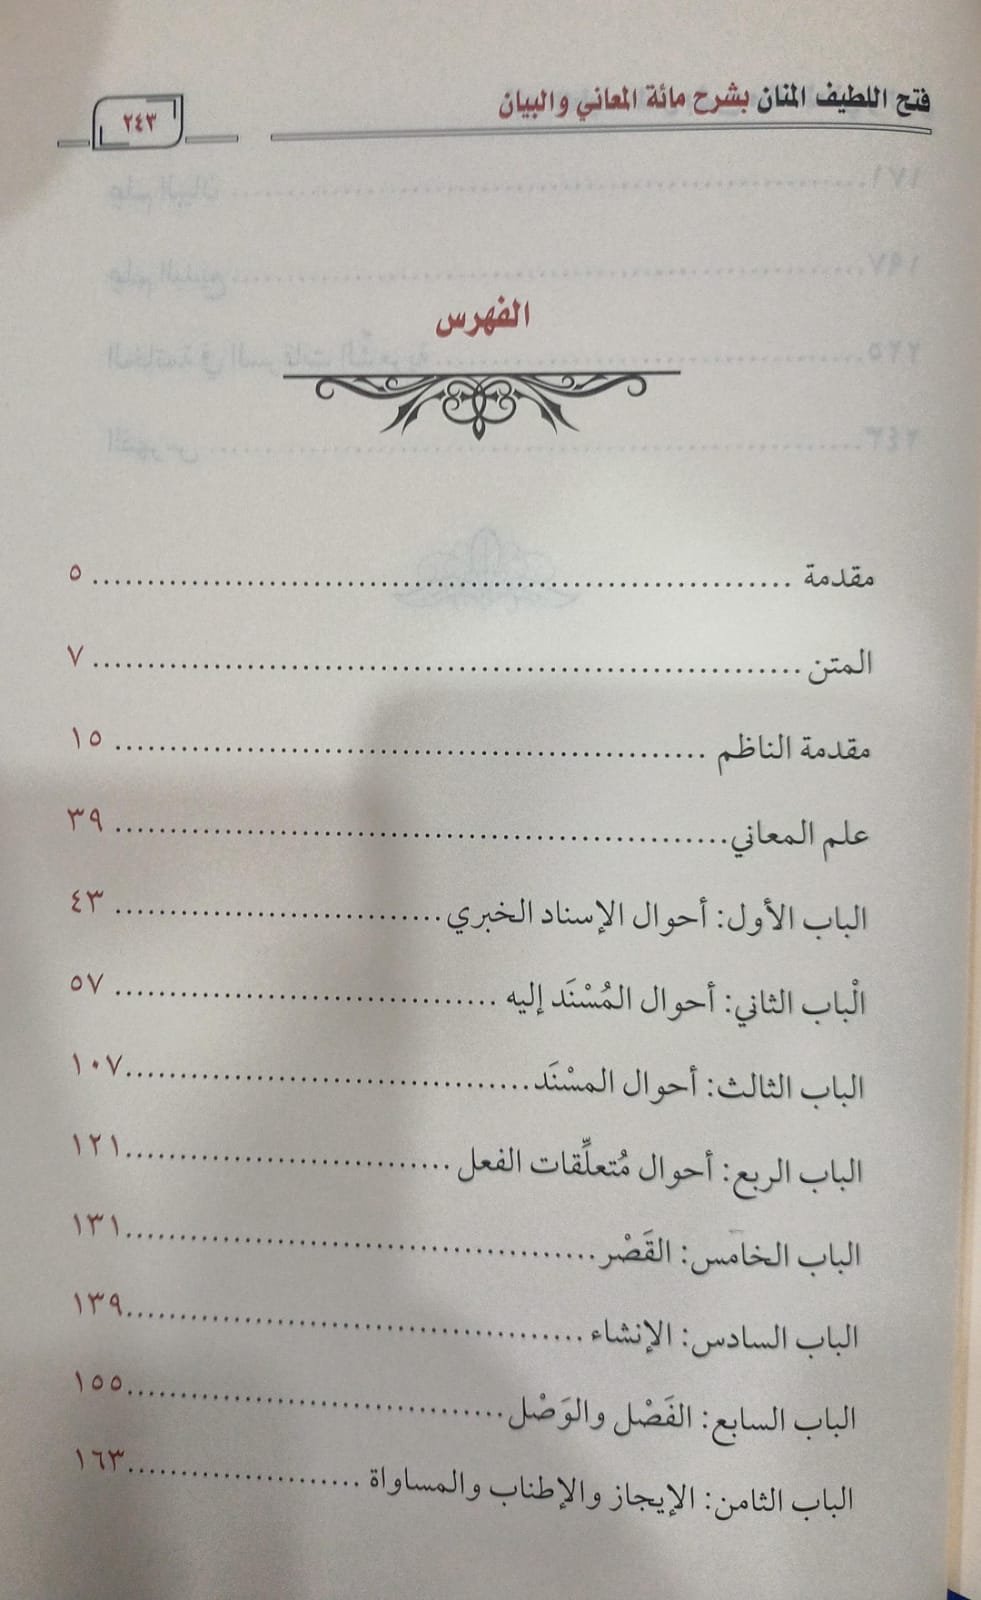 فتح اللطيف المنان بشرح مائة المعاني والبيان ٢٤٣
الفهرس
مقدمة ..... ٥
المتن ..... ٧
مقدمة الناظم ..... ١٥
علم المعاني ..... ٣٩
الباب الأول: أحوال الإسناد الخبري ..... ٤٣
الْباب الثاني: أحوال المُسْنَد إليه ..... ٥٧
الباب الثالث: أحوال المسْنَد ..... ١٠٧
الباب الربع: أحوال مُتعلِّقات الفعل ..... ١٢١
الباب الخامس: القَصْر ..... ١٣١
الباب السادس: الإنشاء ..... ١٣٩
الباب السابع: الفَصْل والوَصْل ..... ١٥٥
الباب الثامن: الإيجاز والإطناب والمساواة ..... ١٦٣